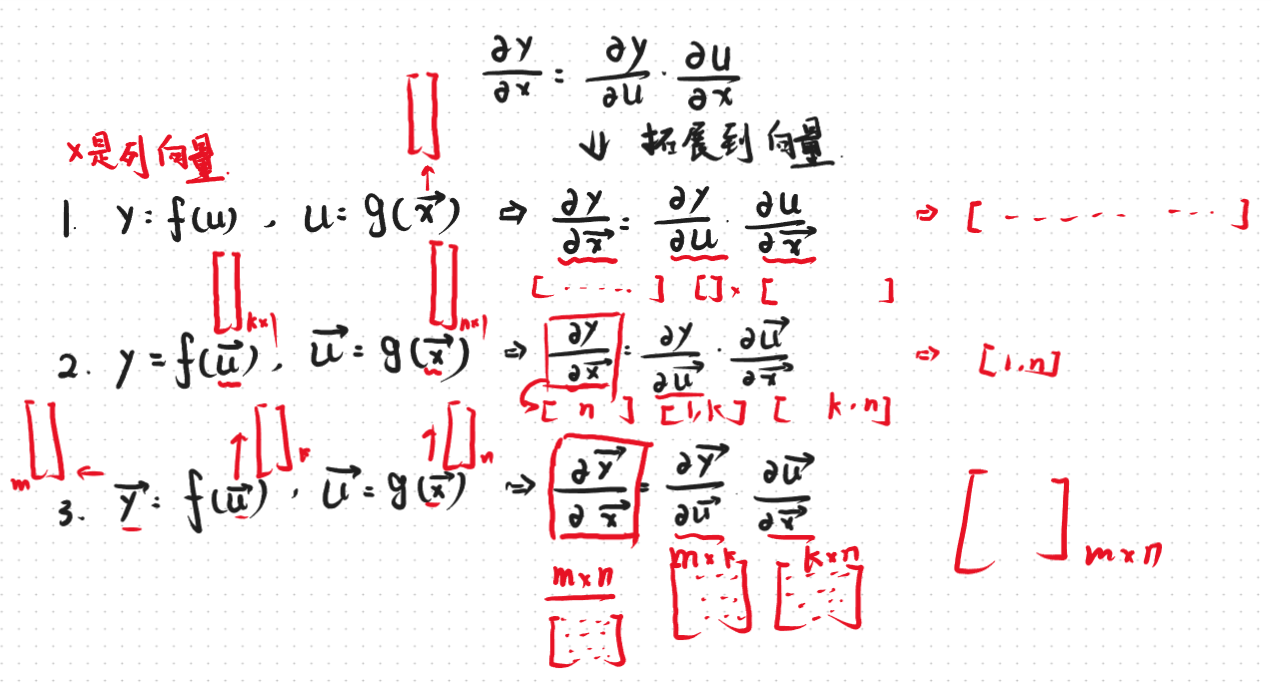 ∂y/∂x = ∂y/∂u · ∂u/∂x
⇓ 拓展到向量
x是列向量
1. y = f(u), u = g(x⃗) ⇒ ∂y/∂x⃗ = ∂y/∂u · ∂u/∂x⃗ ⇒ [ ------- ]
[ ...... ] [ ] × [ ]
k×1 n×1
2. y = f(u⃗), u⃗ = g(x⃗) ⇒ ∂y/∂x⃗ = ∂y/∂u⃗ · ∂u⃗/∂x⃗ ⇒ [1.n]
[ n ] [1,k] [ k·n]
m k n
3. y⃗ = f(u⃗), u⃗ = g(x⃗) ⇒ ∂y⃗/∂x⃗ = ∂y⃗/∂u⃗ · ∂u⃗/∂x⃗ [ ] m×n
m×n m×k k×n